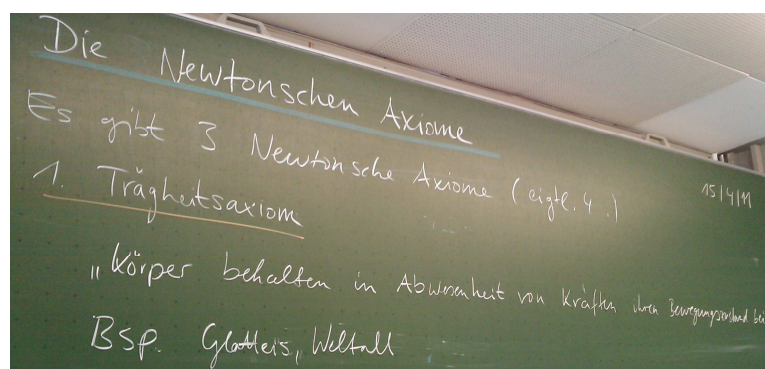 Die Newtonschen Axiome
Es gibt 3 Newtonsche Axiome (eigtl. 4.)
15/4/11
1. Trägheitsaxiom
„Körper behalten in Abwesenheit von Kräften ihren Bewegungszustand bei
Bsp. Glatteis, Weltall